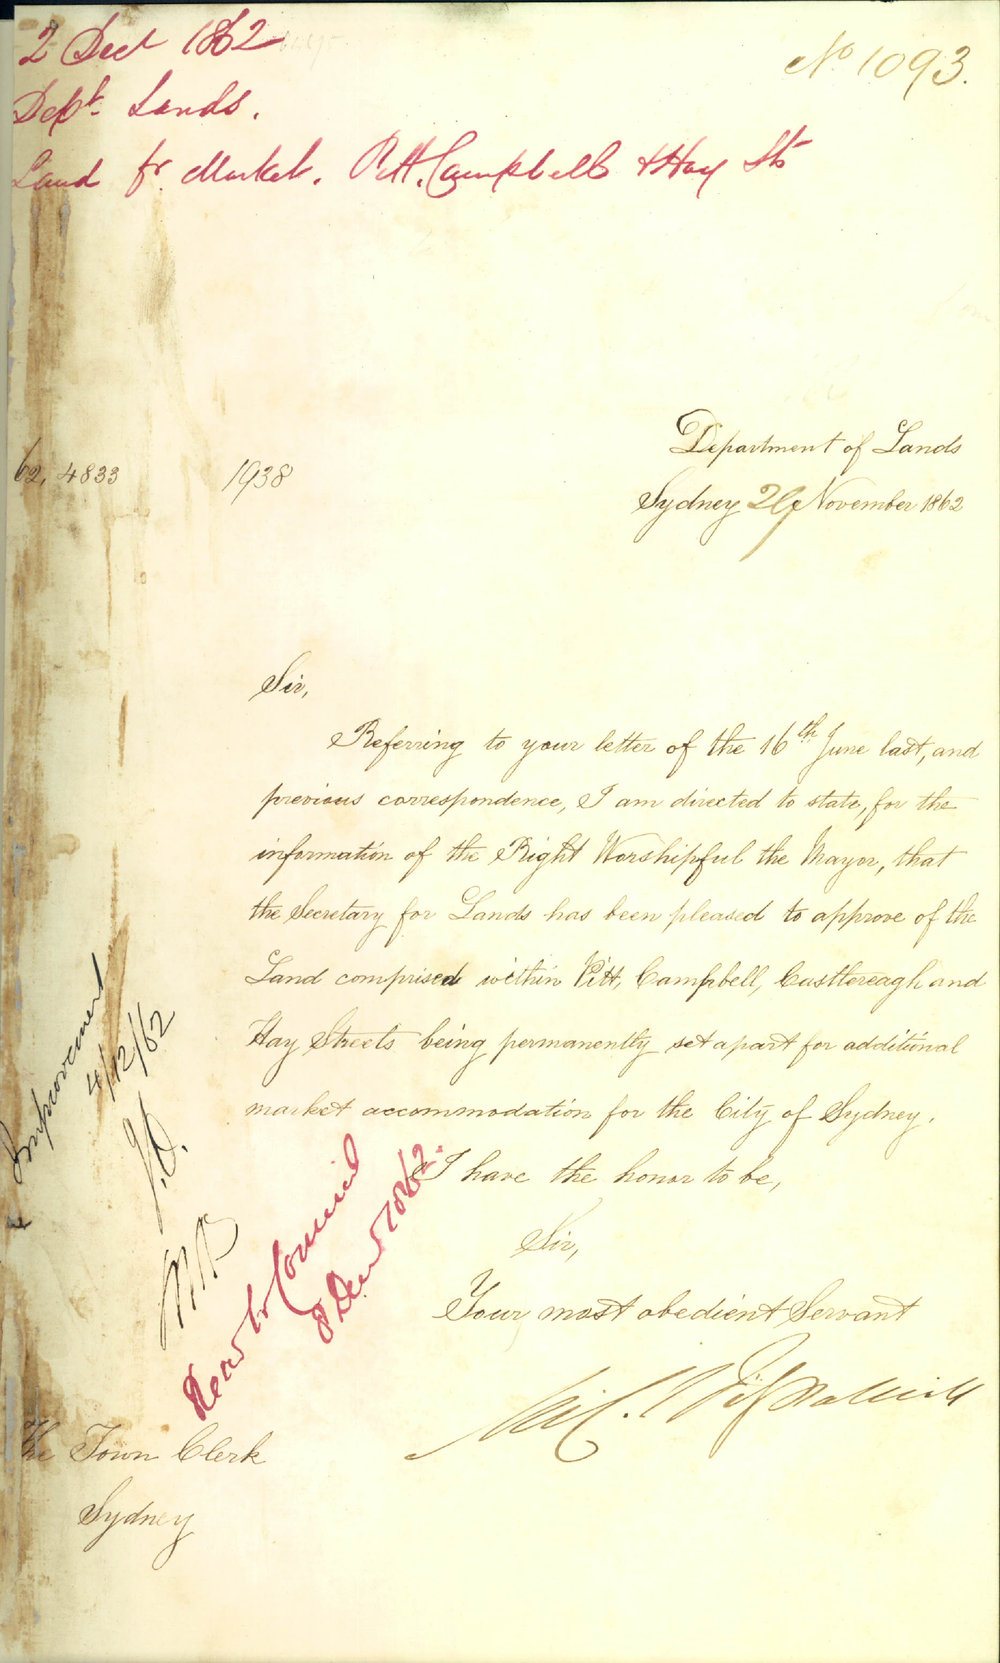 2 Decr 1862
No 1093.
Dept. Lands.
Land for Market. Pitt, Campbell & Hay Sts
Department of Lands
62, 4833
1938
Sydney November 1862
Sir,
Referring to your letter of the 16th June last, and
previous correspondence, I am directed to state, for the
information of the Right Worshipful the Mayor, that
the Secretary for Lands has been pleased to approve of the
Land comprised within Pitt, Campbell, Castlereagh and
Hay Streets being permanently set apart for additional
market accommodation for the City of Sydney.
I have the honor to be,
Sir,
Your most obedient Servant
Improvement
4/12/62
Read to Council
8 Decr 1862.
The Town Clerk
Sydney